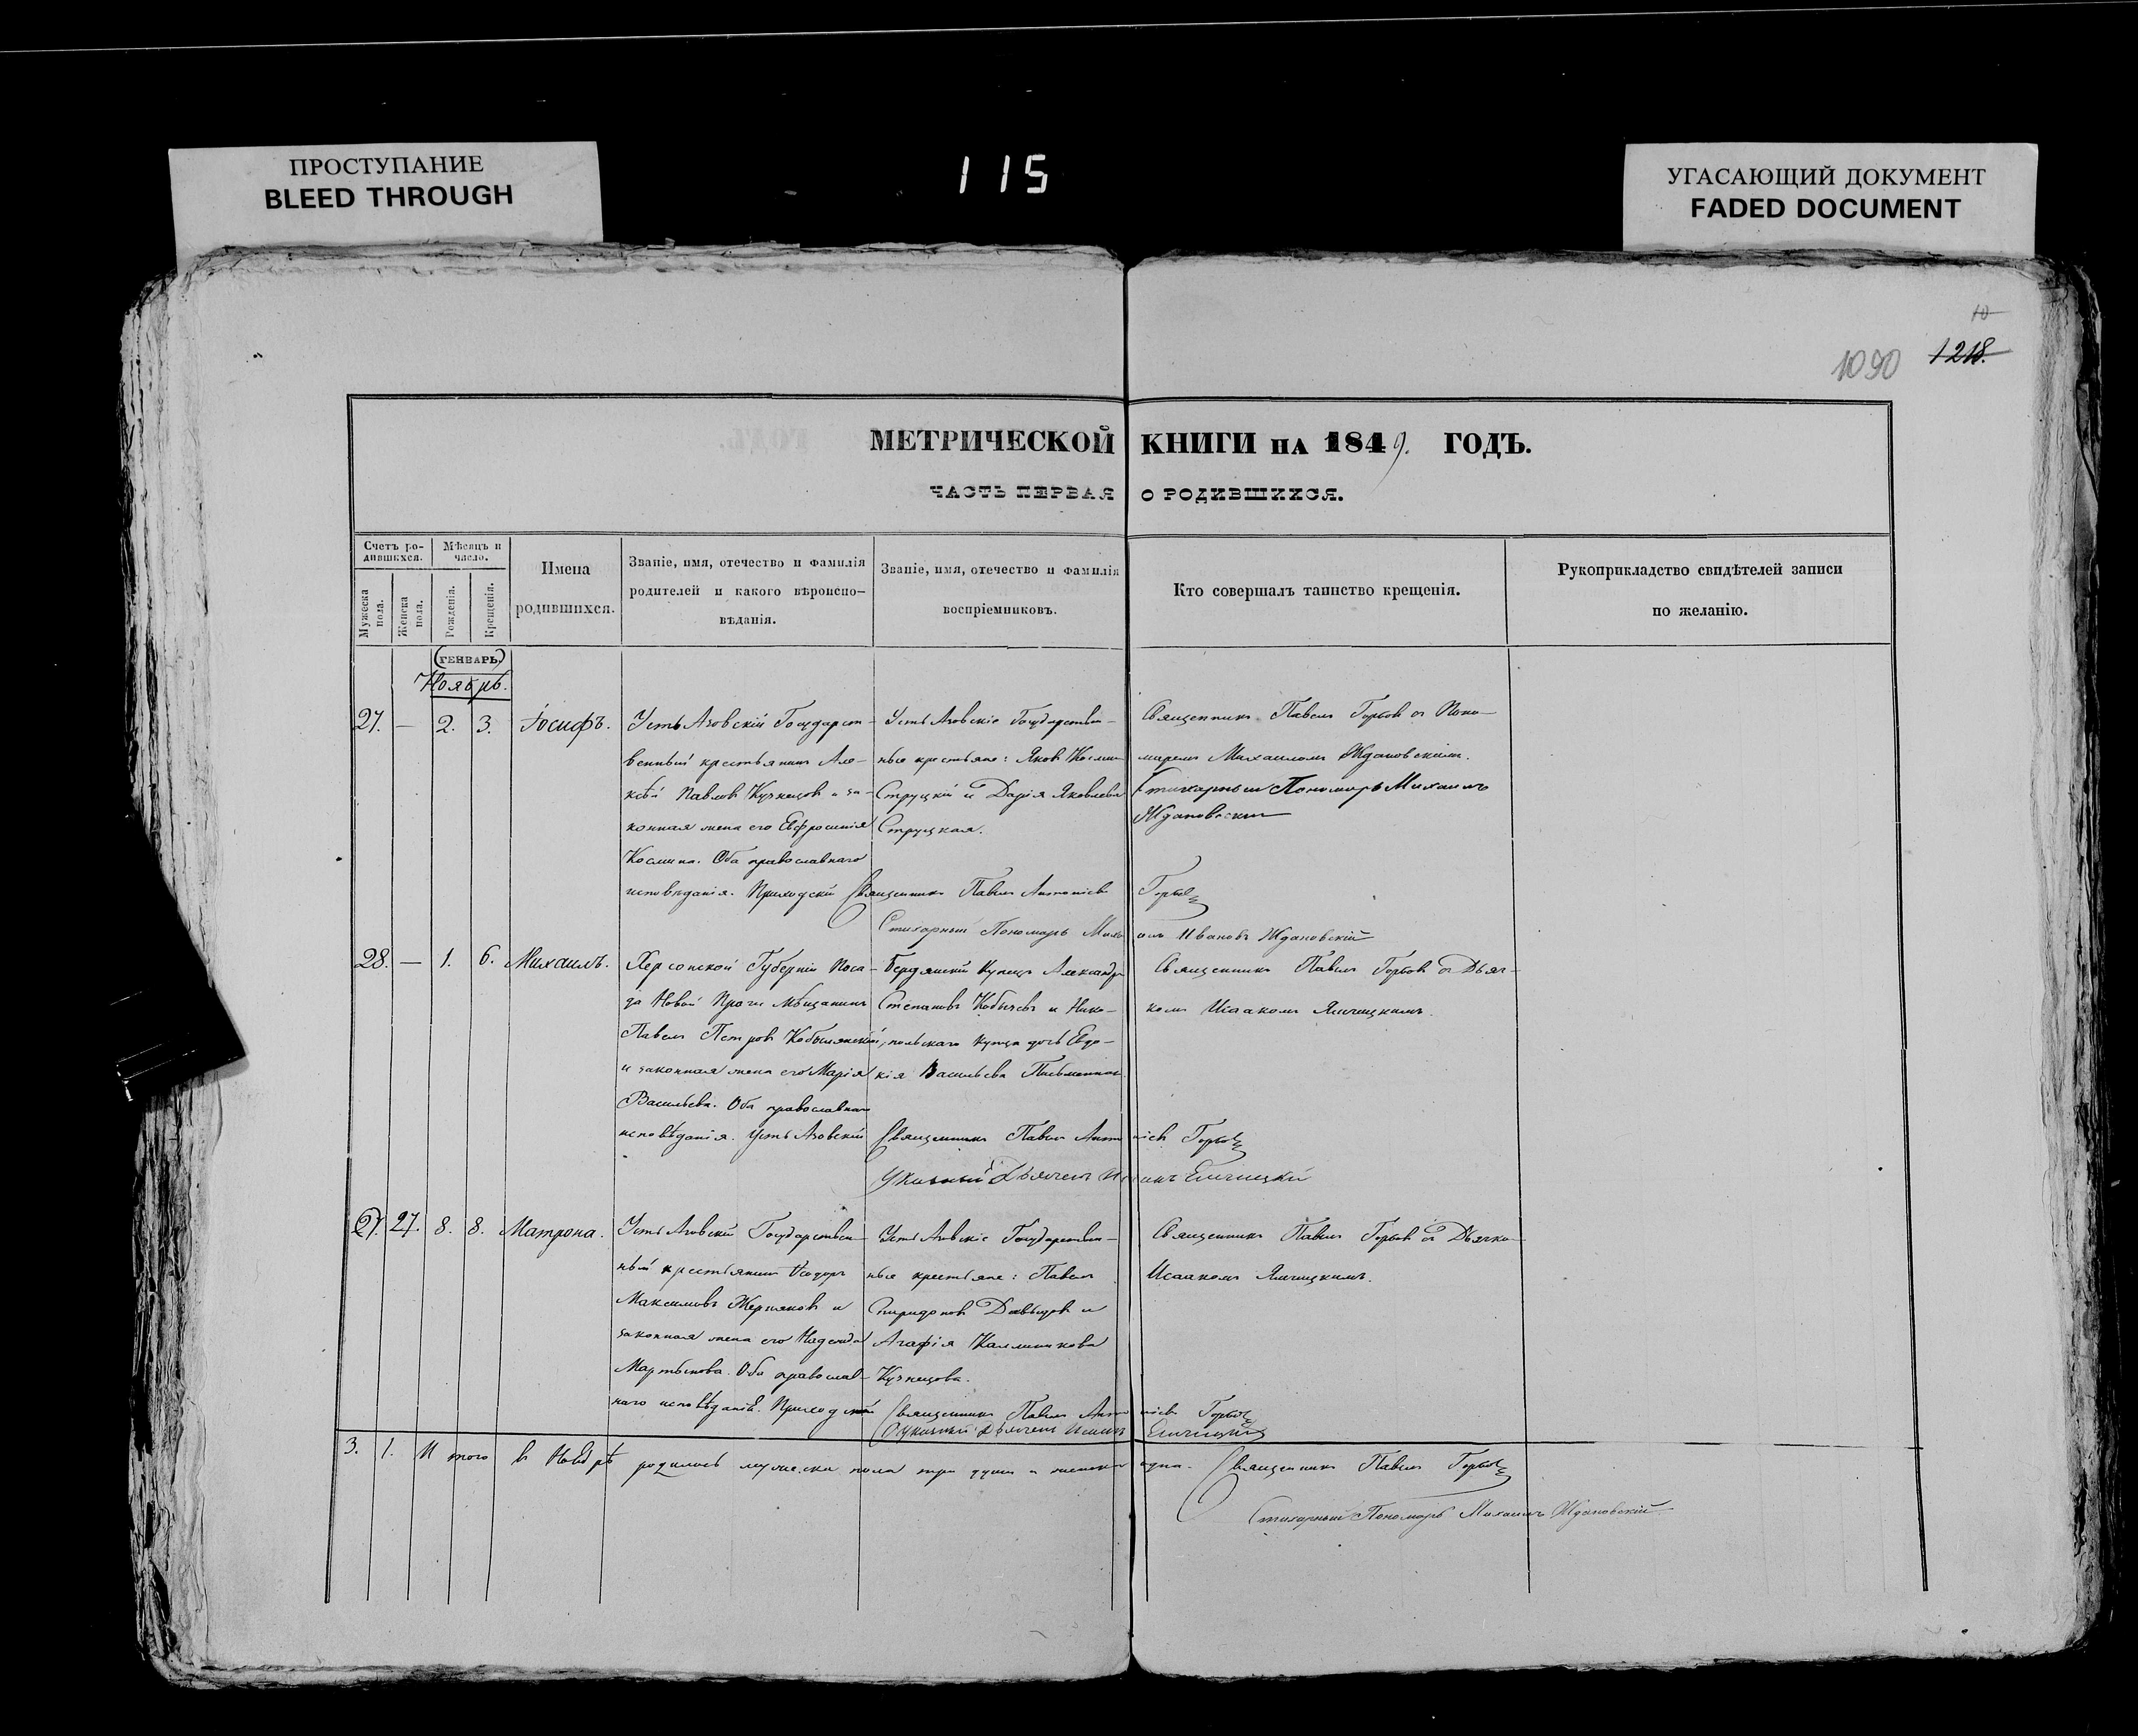 ПРОСТУПАНИЕ
BLEED THROUGH
115
УГАСАЮЩИЙ ДОКУМЕНТ
FADED DOCUMENT
10
1090 1218.
МЕТРИЧЕСКОЙ КНИГИ НА 1849. ГОДЪ.
ЧАСТЬ ПЕРВАЯ О РОДИВШИХСЯ.
Счетъ ро-
дившихся.
Мужеска пола.
Женска пола.
Мѣсяцъ и
число.
Рожденія.
Крещенія.
Имена
родившихся.
Званіе, имя, отечество и фамилія
родителей и какого вѣроиспо-
вѣданія.
Званіе, имя, отечество и фамилія
воспріемниковъ.
Кто совершалъ таинство крещенія.
Рукоприкладство свидѣтелей записи
по желанію.
(ГЕНВАРЬ.)
Ноябрь.
27. — 2. 3. Іосифъ.
Усть Азовскій Государст-
венный крестьянинъ Але-
ксѣй Павловъ Кузнецовъ и за-
конная жена его Евфросинія
Космина. Оба православнаго
исповѣданія. Приходскій Священникъ Павелъ Антоніевъ Горбов
Усть Азовскіе Государствен-
ные крестьяне: Яковъ Космин
Струцкій и Дарія Яковлева
Струцкая.
Священникъ Павелъ Горбовъ съ Поно-
маремъ Михаиломъ Ждановскимъ.
Стихарный Пономарь Михаилъ
Ждановский
Стихарный Пономарь Михаилъ Ивановъ Ждановскій
28. — 1. 6. Михаилъ.
Херсонской Губерніи Поса-
да Новой Праги Мѣщанинъ
Павелъ Петровъ Кобылянскій,
и законная жена его Марія
Васильева. Оба православнаго
исповѣданія. Усть Азовскій Священникъ Павелъ Антоніевъ Горбов
Бердянскій Купецъ Александръ
Степановъ Кобычевъ и Нико-
польскаго купца дочь Евдо-
кія Васильева
Священникъ Павелъ Горбовъ съ Дьяч-
комъ Исаакомъ Яличицкимъ.
Указный Дьячекъ Исаакъ Еличицкій
27. 27. 8. 8. Матрона.
Усть Азовскій Государствен-
ный крестьянинъ Ѳеодоръ
Максимовъ Жерняковъ и
законная жена его Надежда
Мартынова. Оба православ-
наго исповѣданія. Приходскій Священникъ Павелъ Антоніевъ Горбов
Усть Азовскіе Государствен-
ные крестьяне: Павелъ
Спиридоновъ Давыдовъ и
Агафія Каллиникова
Кузнецова.
Священникъ Павелъ Горбовъ съ Дьячко
Исаакомъ Яличицкимъ.
Указный Дьячекъ Исаакъ Еличицкій
3. 1. И того в Ноябрѣ родилось мужеска пола три души и женска одна. Священникъ Павелъ Горбов
Стихарный Пономарь Михаилъ Ждановскій